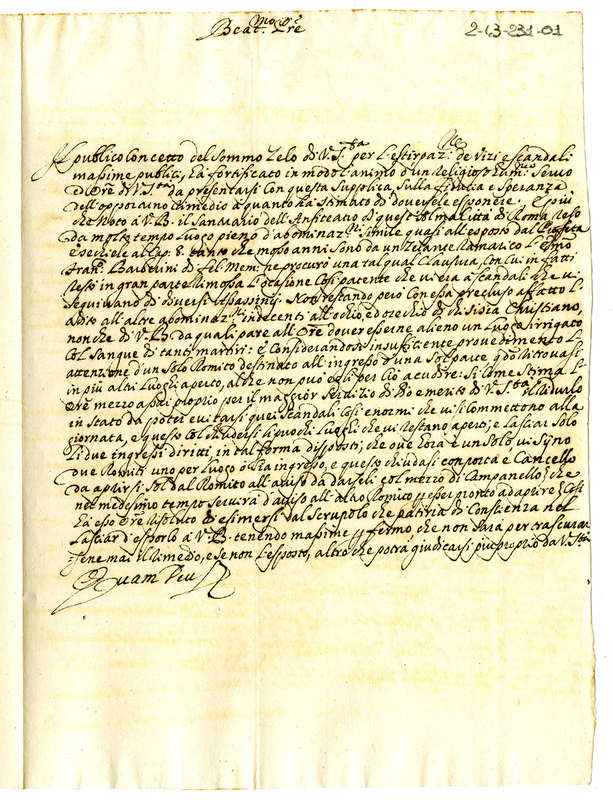 Beat.mo Pre
2-43-231-01
Il publico Concetto del Sommo Zelo di V. S.tà per l'estirpaz.ne de Vizi e Scandali
massime publici, hà fortificato in modo l'animo d'un Religioso Humi.mo Servo
Ore di V. S.tà da presentarsi Con questa Supplica, Sulla fiducia e Speranza
dell'opportuno rimedio à quanto hà stimato di doversele esponere. E più
che Noto à V. B. il Santuario dell'Anfiteatro di quest' alma Città di Roma reso
da molto tempo Luogo pieno d'abominaz.ni simile quasi all'esposto dal Profeta
Ezechiele al Cap. 8. tanto che molti anni sono da un Zelante rama.co l'Em.mo
Fran. Barberini di fel. Mem. ne procurò una tal qual Clausura, Con cui in fatti
restò in gran parte rimossa l'ocasione Così patente che vi era à scandali che vi
seguivano di diversi trapassanti. Non restando però Con essa precluso affatto l'
adito all'altre abominaz.ni indecenti all'ochio, ed orechio di chi sia Christiano,
non che di V. B. da quali pare all' Ore dover esserne alieno un Luogo irrigato
Col Sangue di tanti martiri: e Considerandosi insufficiente provedimento l'
attenzione d'un Solo Romito destinato all'ingresso d'una Sol parte quando ritrovasi
in più altri Luoghi aperto, al che non può egli per ciò acudire: Si Come Stima l'
Ore mezzo assai proprio per il maggior Servizio di Dio e merito di V. S.tà il ridurlo
in Stato da poter evitarsi quei Scandali Così enormi che vi si Commettono alla
giornata, e questo Col chiudersi li puochi Luoghi che vi restano aperti; e lasciar Solo
li due ingressi diritti, in tal forma disposti; che ove hora è un Solo vi Siino
due Romiti uno per luogo ò sia ingresso, e questo chiudasi con porta è Cancello
da aprirsi Sol dal Romito all'aviso da darseli col mezzo di Campanello, che
nel medesimo tempo Servirà d'aviso all'altro Romito per esser pronto ad aprire. Così
hà esso Ore risoluto di esimersi dal Scrupolo che patiria di Conscienza nel
lasciar d'esporlo à V. B. tenendo massime per fermo che non Sarà per trascurar-
sene mai il rimedio, e se non l'esposto, altro che potrà giudicarsi più proprio da V. S.tà
Quam Deus